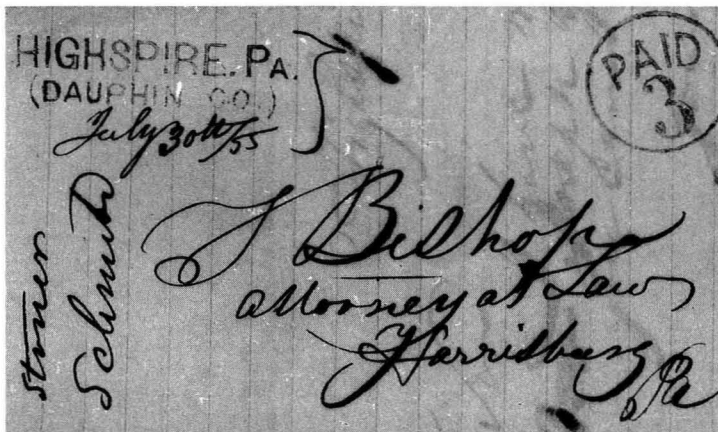 HIGHSPIRE. PA.
(DAUPHIN CO.)
July 30th/55
PAID
3
Bishop
Attorney at Law
Harrisburg
Pa